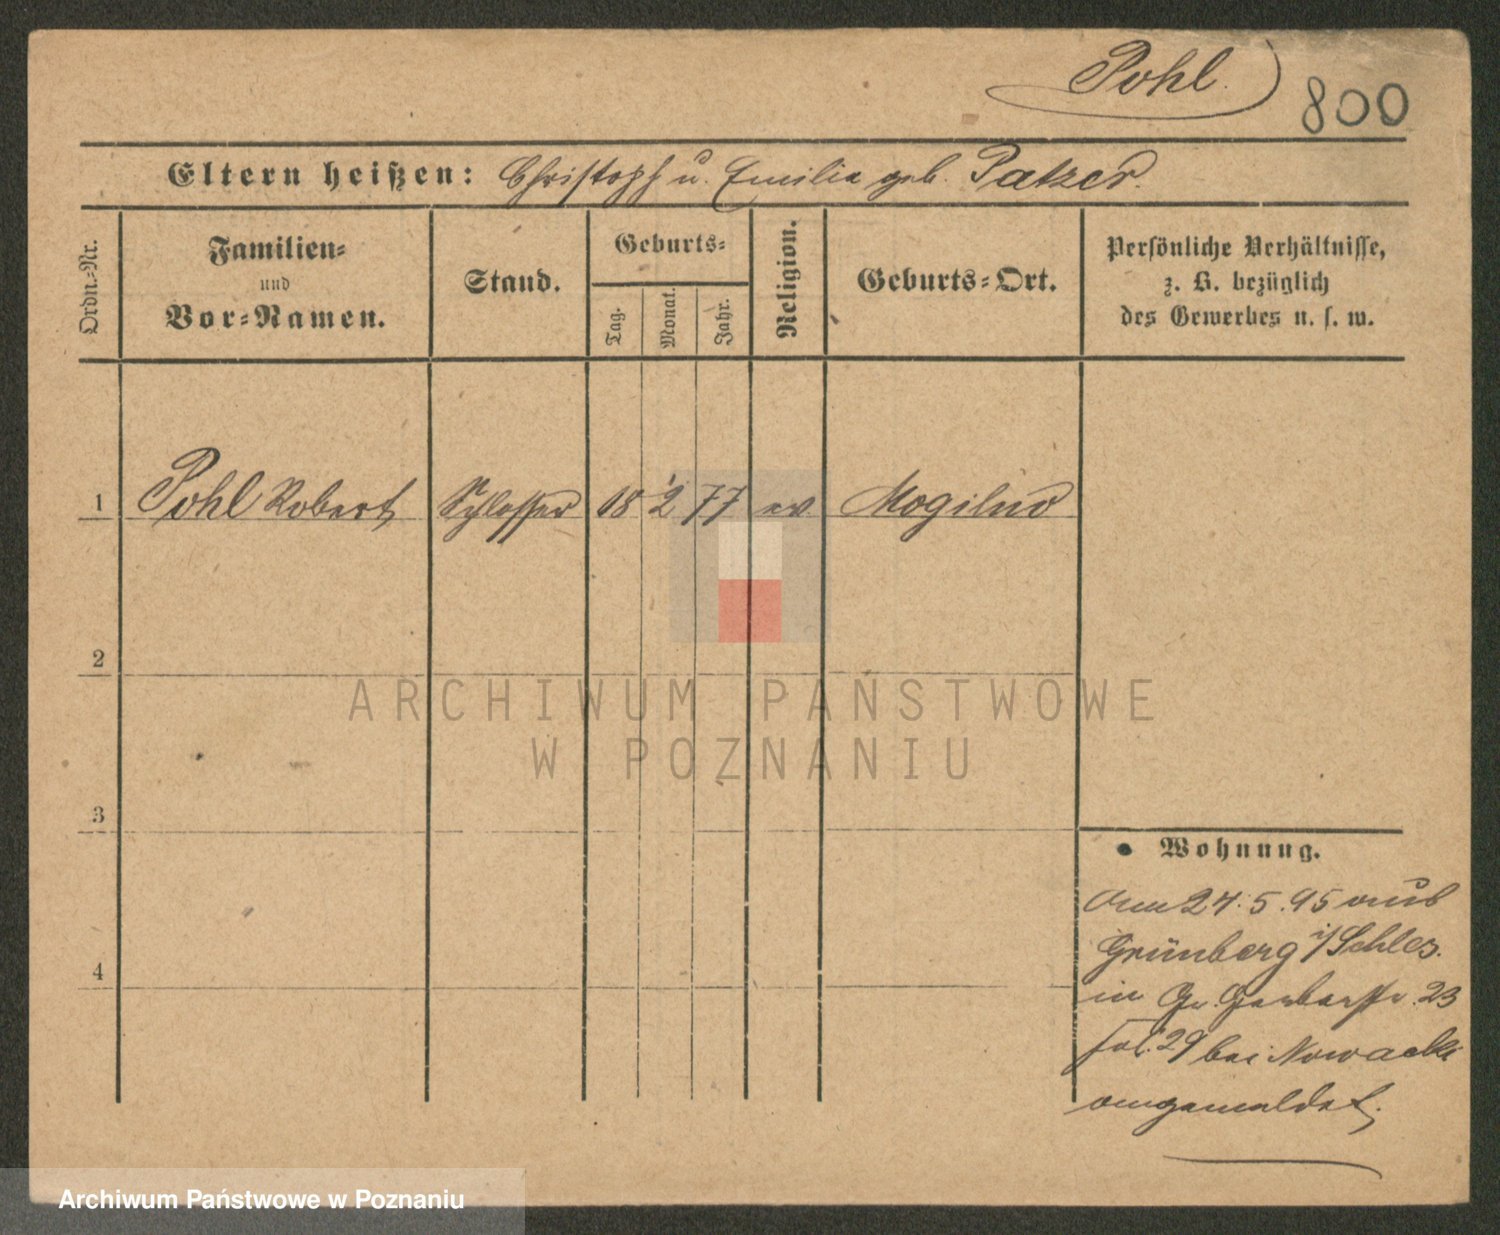 Pohl.
800
Eltern heißen: Christoph u. Emilie geb. Patzer.
Ordn.-Nr.
Familien-
und
Vor-Namen.
Stand.
Geburts-
Tag.
Monat.
Jahr.
Religion.
Geburts-Ort.
Persönliche Verhältnisse,
z. B. bezüglich
des Gewerbes u. s. w.
1 Pohl Robert Schlosser 18 2 77 ev Mogilno
2
3
4
ARCHIWUM PAŃSTWOWE
W POZNANIU
Wohnung.
Am 24.5.95 aus
Grünberg i/Schles.
in Gr. Gerberstr. 23
fol. 29 bei Nowacki
angemeldet.
Archiwum Państwowe w Poznaniu